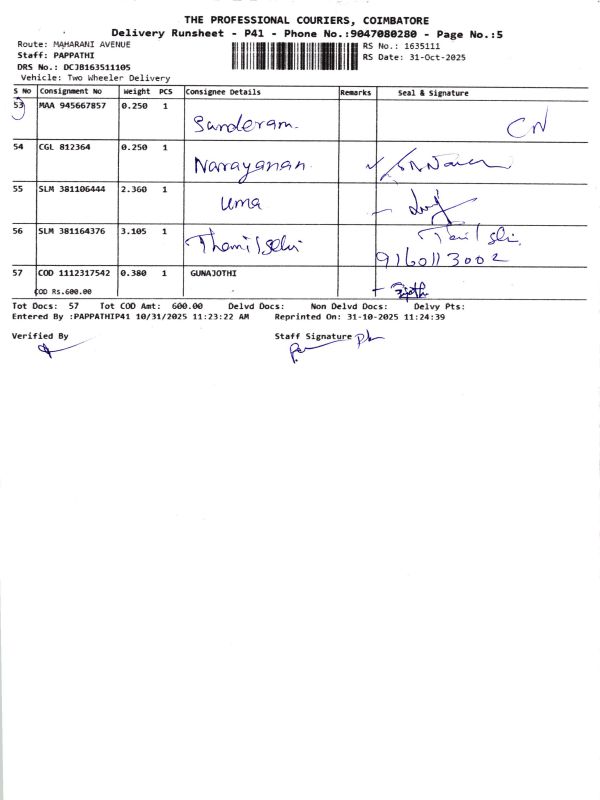 THE PROFESSIONAL COURIERS, COIMBATORE
Delivery Runsheet - P41 - Phone No.:9047080280 - Page No.:5
Route: MAHARANI AVENUE
RS No.: 1635111
Staff: PAPPATHI
RS Date: 31-Oct-2025
DRS No.: DCJB163511105
Vehicle: Two Wheeler Delivery
S No Consignment No Weight PCS Consignee Details Remarks Seal & Signature
53 MAA 945667857 0.250 1 Sunderam. CN
54 CGL 812364 0.250 1 Narayanan
55 SLM 381106444 2.360 1 uma
56 SLM 381164376 3.105 1 Thamilselvi
9160113002
57 COD 1112317542 0.380 1 GUNAJOTHI
COD Rs.600.00
Tot Docs: 57 Tot COD Amt: 600.00 Delvd Docs: Non Delvd Docs: Delvy Pts:
Entered By :PAPPATHIP41 10/31/2025 11:23:22 AM Reprinted On: 31-10-2025 11:24:39
Verified By Staff Signature